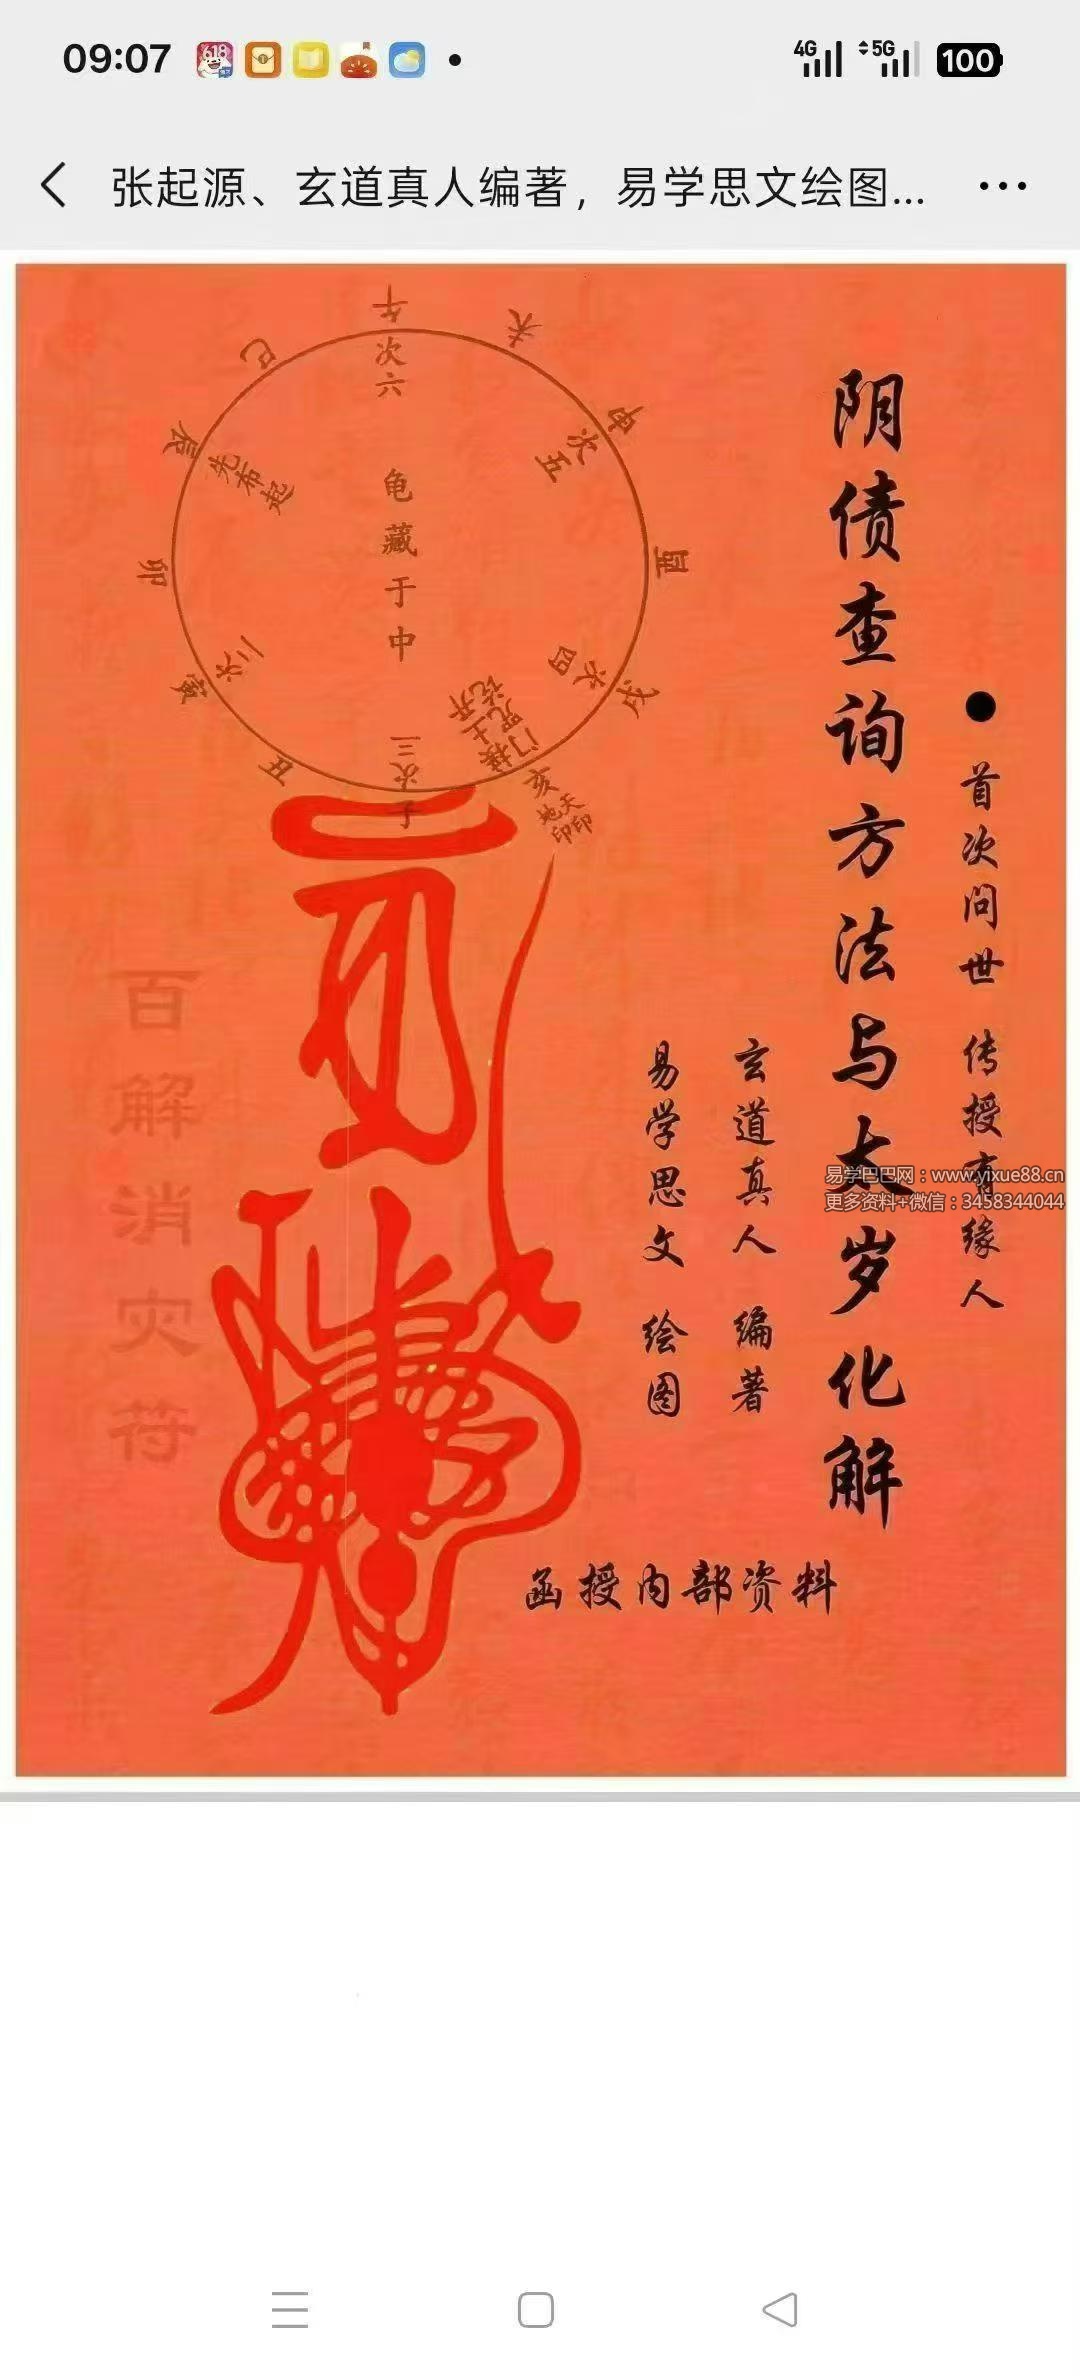 09:07
618
4G
5G
100
张起源、玄道真人编著，易学思文绘图...
● 首次问世 传授有缘人
阴债查询方法与太岁化解
玄道真人 编著
易学思文 绘图
函授内部资料
百解消灾符
龟藏于中
午
次六
未
申
次五
酉
戌
次四
亥
天印
地印
子
次三
丑
寅
次二
卯
辰
先布起
巳
易学巴巴网：www.yixue88.cn
更多资料+微信：3458344044